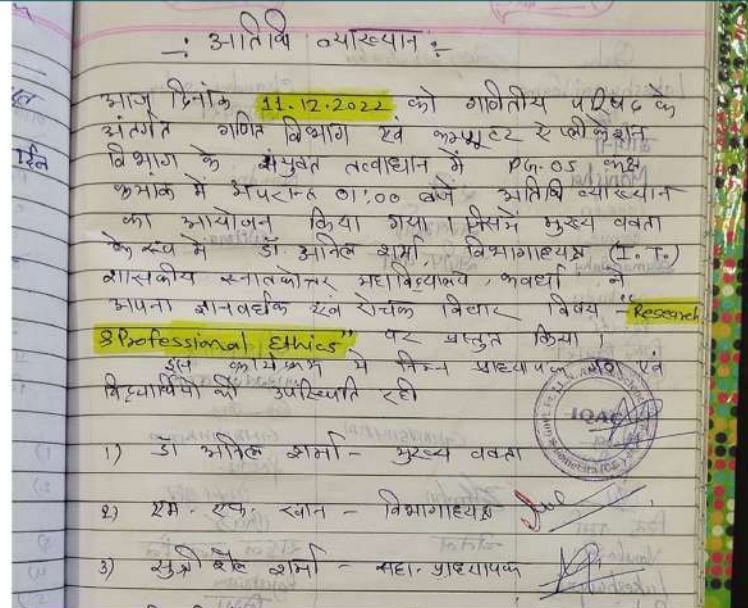 -: अतिथि व्याख्यान :-
आज दिनांक 11.12.2022 को गणितीय परिषद के
अंतर्गत गणित विभाग एवं कम्प्यूटर एप्लीकेशन
विभाग के संयुक्त तत्वाधान में PG-05 कक्ष
क्रमांक में अपरान्ह 01:00 बजे अतिथि व्याख्यान
का आयोजन किया गया। जिसमें मुख्य वक्ता
के रूप में डॉ. अनिल शर्मा विभागाध्यक्ष (I.T.)
शासकीय स्नातकोत्तर महाविद्यालय, कवर्धा ने
अपना ज्ञानवर्धक एवं रोचक विचार विषय - "Research
& Professional Ethics" पर प्रस्तुत किया।
इस कार्यक्रम में निम्न प्राध्यापक एवं
विद्यार्थियों की उपस्थिति रही
IQAC
1) डॉ अनिल शर्मा - मुख्य वक्ता
2) एम. एक. खान - विभागाध्यक्ष
3) सुश्री शैल शर्मा - सहा. प्राध्यापक